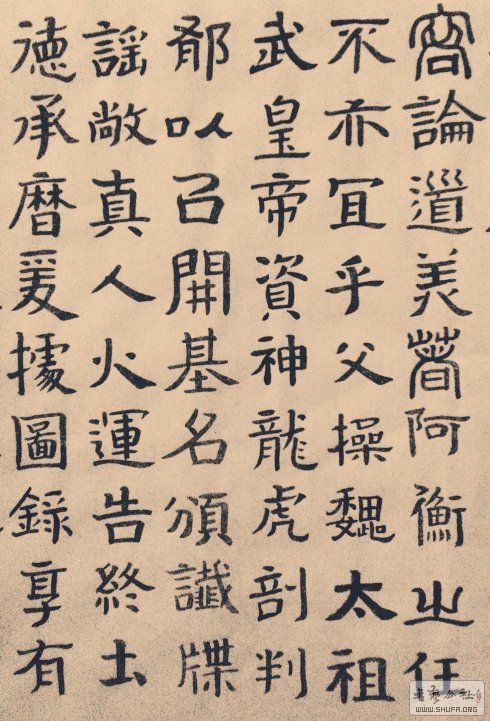 論道美阿衡之任
不亦宜乎父操魏太祖
武皇帝資神龍虎剖判
以召開基名頒讖牒
謡敞真人火運告終土
徳承曆爰據圖錄享有
WWW.SHUFA.ORG